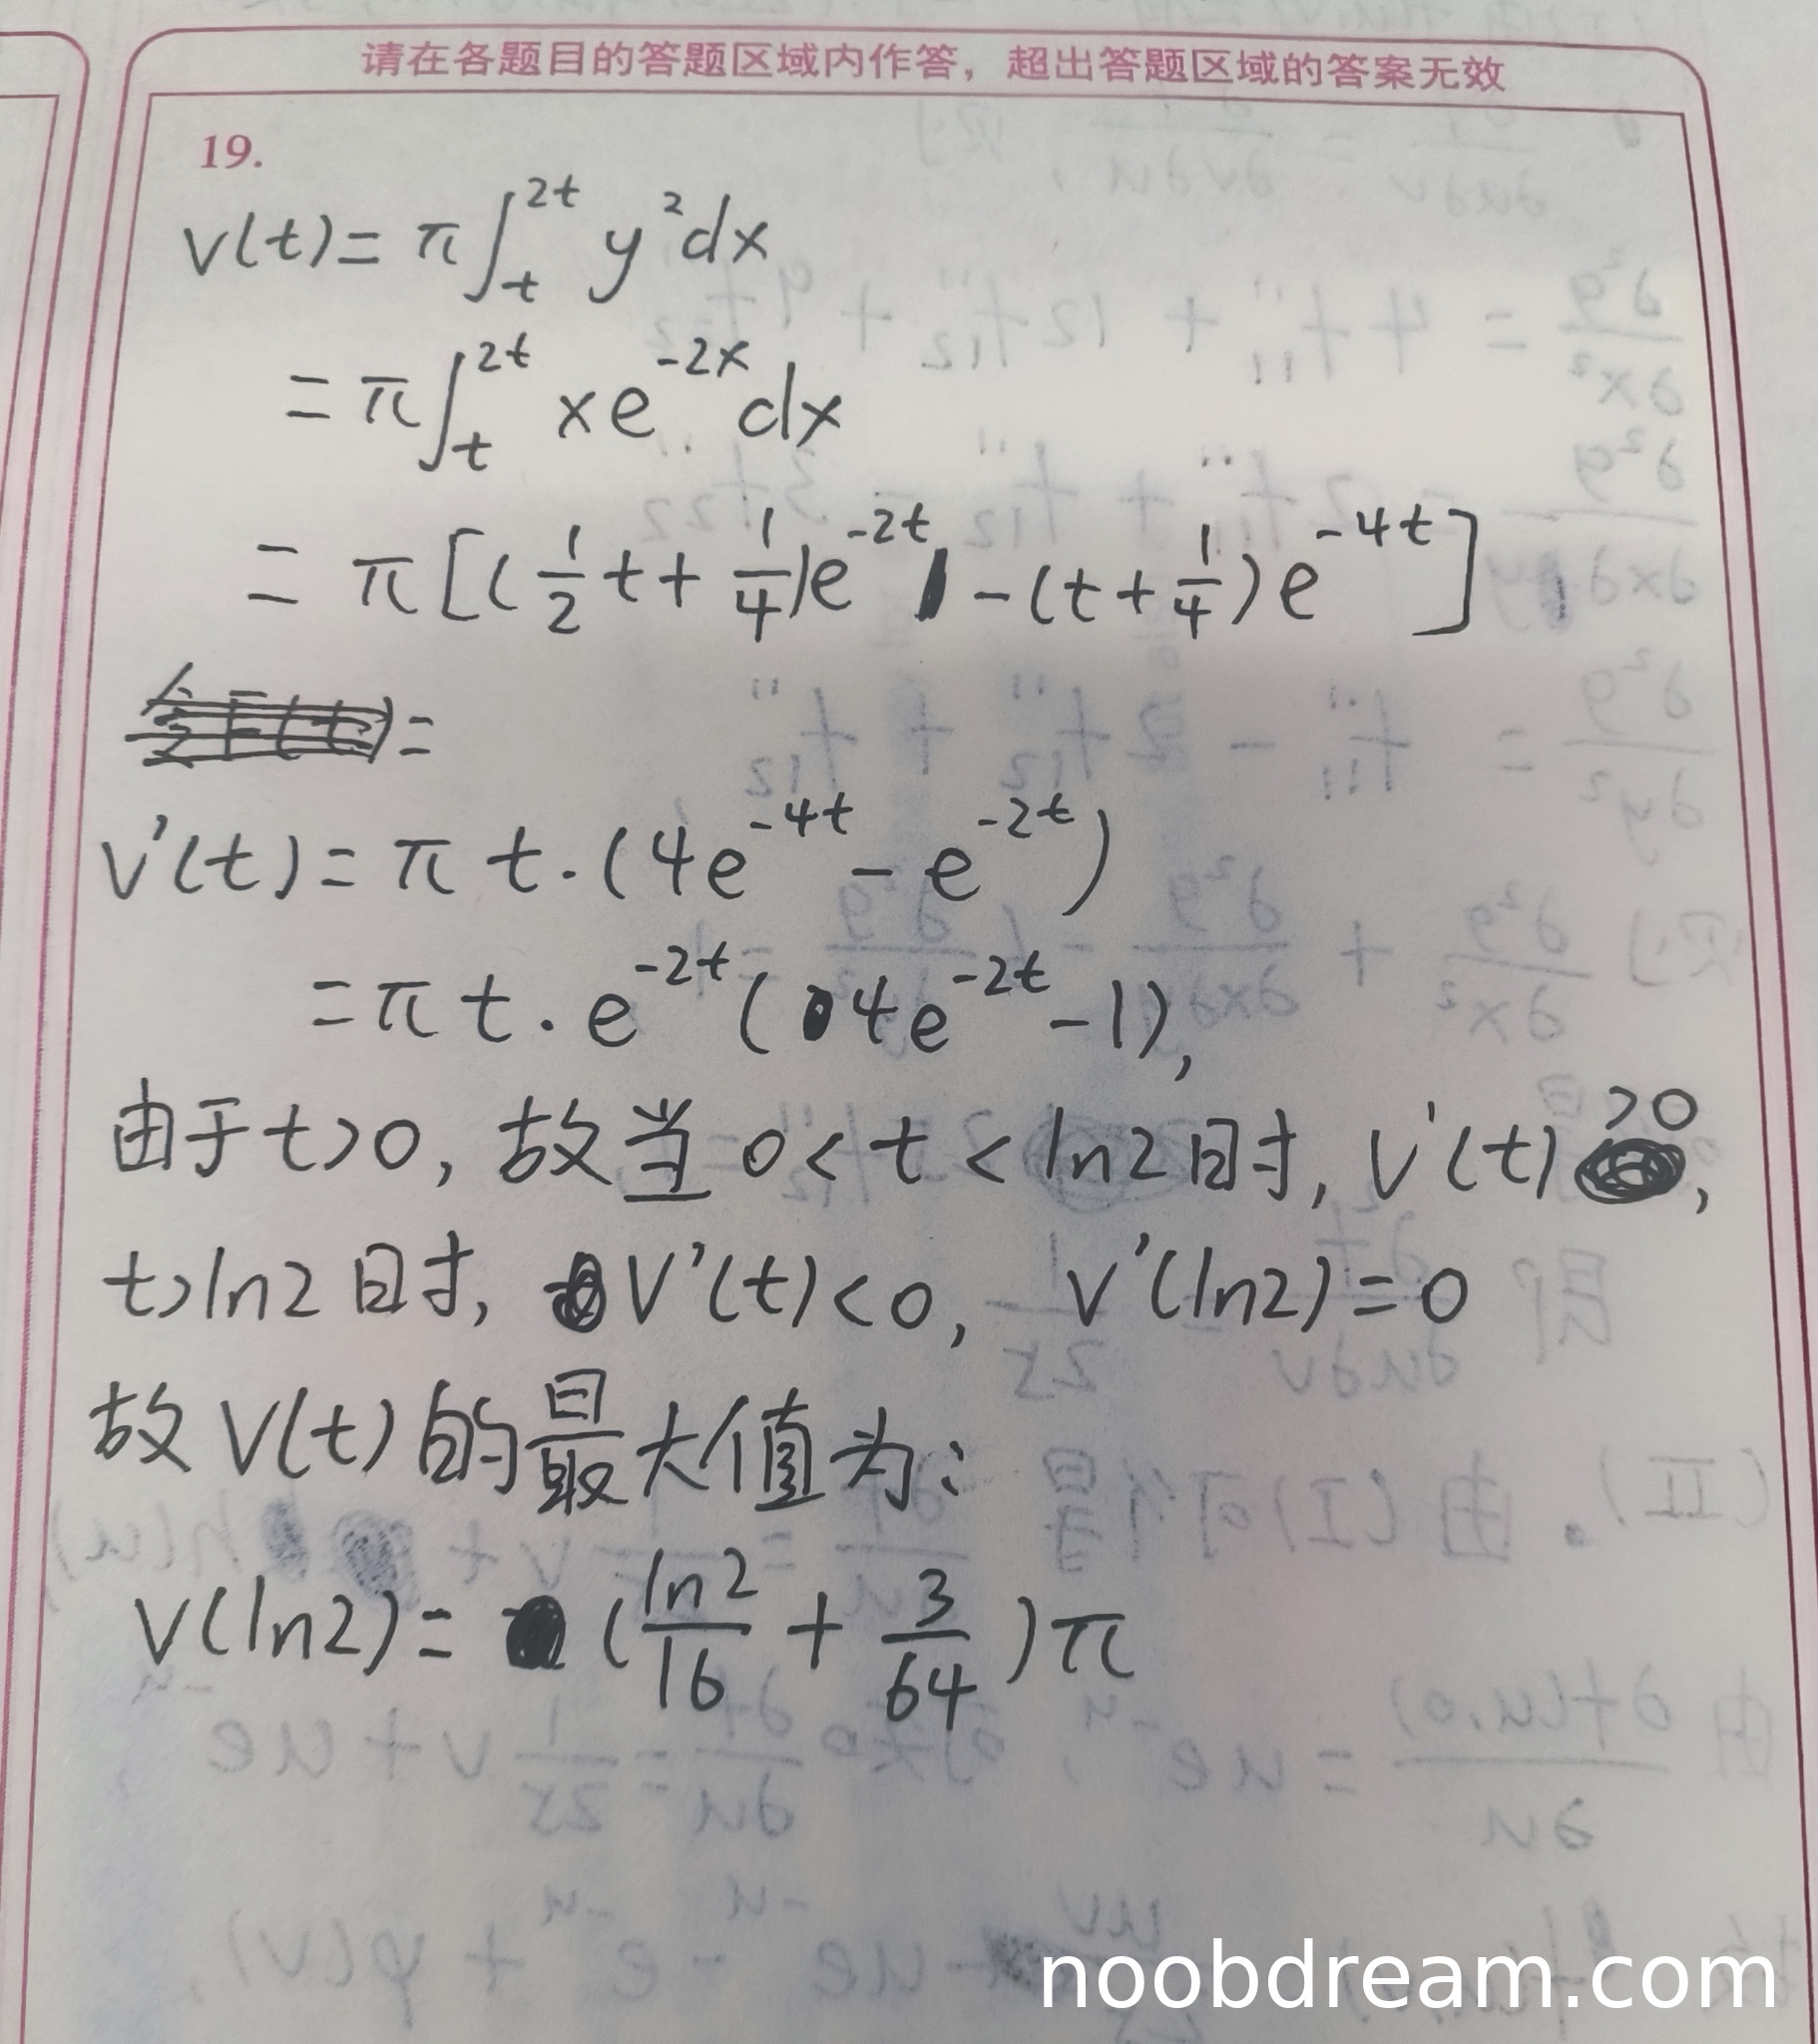 请在各题目的答题区域内作答，超出答题区域的答案无效
19.
V(t) = π∫_t^{2t} y² dx
= π∫_t^{2t} x e^{-2x} dx
= π[(\frac{1}{2}t + \frac{1}{4})e^{-2t} - (t + \frac{1}{4})e^{-4t}]
=
V'(t) = π t · (4e^{-4t} - e^{-2t})
= π t · e^{-2t}(4e^{-2t} - 1),
由于t>0, 故当 0 < t < ln2时, V'(t) >0,
t>ln2时, V'(t)<0, V'(ln2)=0
故 V(t) 的最大值为:
V(ln2) = (\frac{ln2}{16} + \frac{3}{64})π
noobdream.com